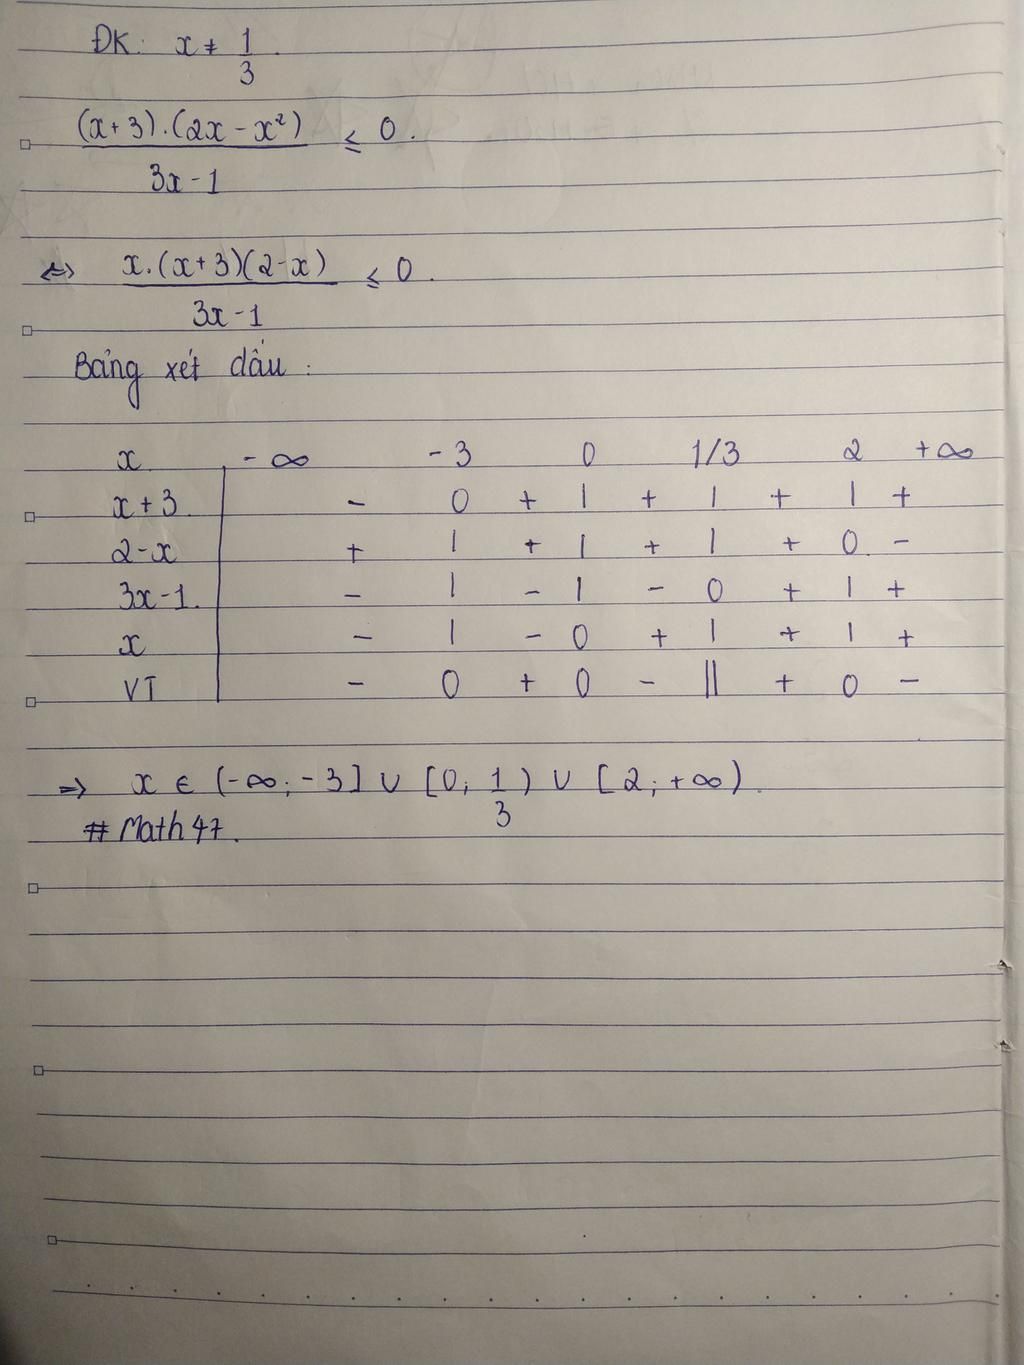 ĐK: x ≠ 1/3.
(x+3).(2x-x²)/3x-1 ≤ 0.
<=> x.(x+3)(2-x)/3x-1 ≤ 0.
Bảng xét dấu:
x -∞ -3 0 1/3 2 +∞
x+3 - 0 + | + | + | +
2-x + | + | + | + 0 -
3x-1 - | - | - 0 + | +
x - | - 0 + | + | +
VT - 0 + 0 - || + 0 -
=> x ∈ (-∞;-3] ∪ [0; 1/3) ∪ [2;+∞).
# Math 47.